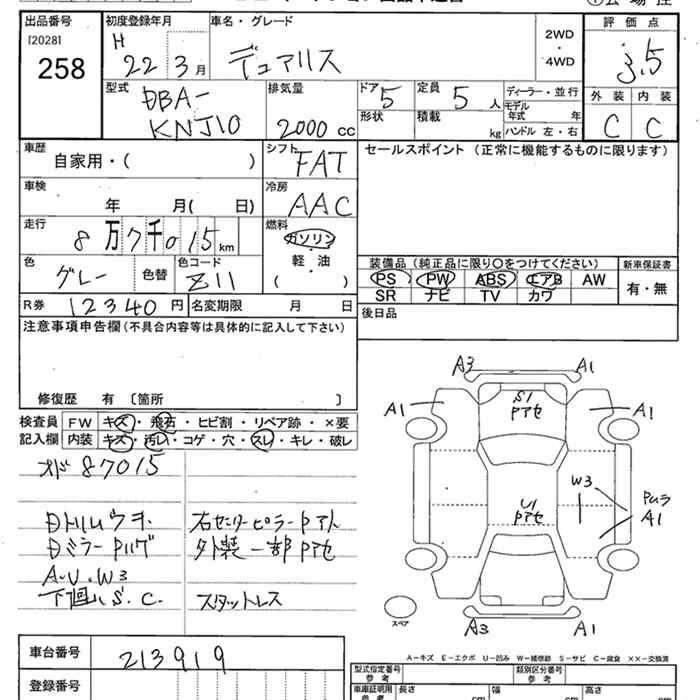 出品番号
[2028]
258
初度登録年月
H
22 3月
車名・グレード
デュアリス
2WD
・
4WD
評価点
3.5
外装 内装
C C
型式
DBA-
KNJ10
排気量
2000 cc
ドア 5
形状
定員 5 人
積載 kg
ディーラー・並行
モデル
年式 年
ハンドル 左・右
車歴
自家用・( )
シフト
FAT
セールスポイント (正常に機能するものに限ります)
車検
年 月( 日)
冷房
AAC
走行
8万7千015km
燃料
ガソリン
・
軽・油
・
( )
色
グレー
色替
色コード
Z11
装備品 (純正品に限り〇をつけてください)
PS PW ABS エアB AW
SR ナビ TV カワ
新車保証書
有・無
R券 12340円
名変期限 月 日
後日品
注意事項申告欄 (不具合内容等は具体的に記入して下さい)
修復歴 有 〔箇所 〕
検査員
記入欄
FW キズ・飛石・ヒビ割・リペア跡・×要
内装 キズ・汚レ・コゲ・穴・スレ・キレ・破レ
オド 87015
Dトリムウキ 右センターピラーPアト
DミラーPハゲ 外装一部Pアセ
A・U・W3
下廻りS.C. スタットレス
A3 A1
A1 S1 Pアセ A1
W3
U1 Pアセ
Pムラ
A1
スペア
A3 A1
A-キズ E-エクボ U-凹み W-補修跡 S-サビ C-腐食 ××-交換済
車台番号
213919
登録番号
型式指定番号
参考
類別区分番号
参考
車庫証明用
参考
長さ cm
幅 cm
高さ cm